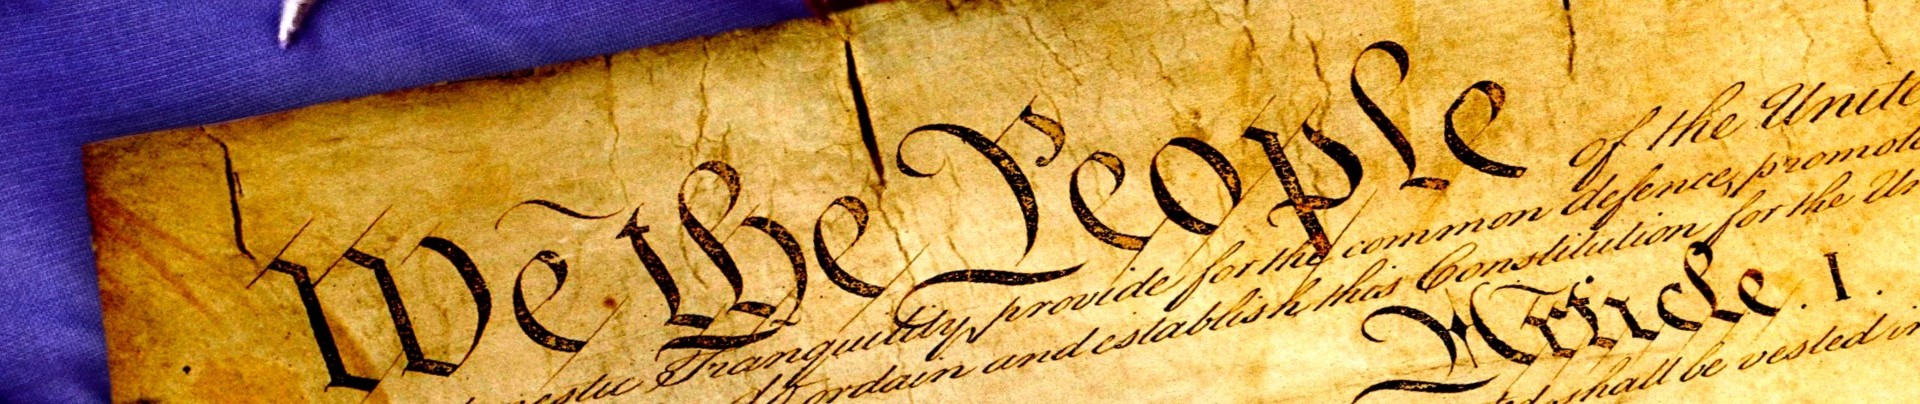 We the People of the Unite
mestic Tranquility, provide for the common defence, promote
ordain and establish this Constitution for the Un
Article. I.
shall be vested in